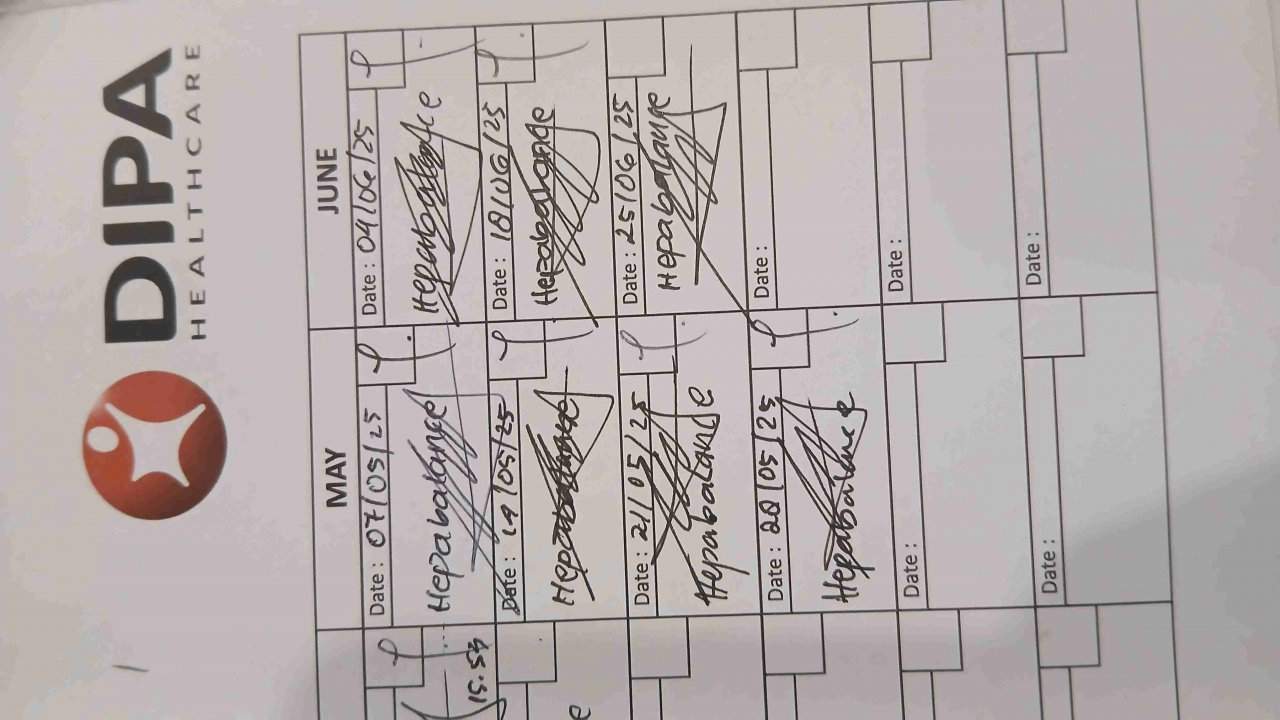 DIPA
HEALTHCARE
MAY
JUNE
Date: 07/05/25
Hepabalance
Date: 14/05/25
Hepabalance
Date: 21/05/25
Hepabalance
Date: 28/05/25
Hepabalance
Date:
Date:
Date: 04/06/25
Hepabalance
Date: 18/06/25
Hepabalance
Date: 25/06/25
Hepabalance
Date:
Date:
Date: